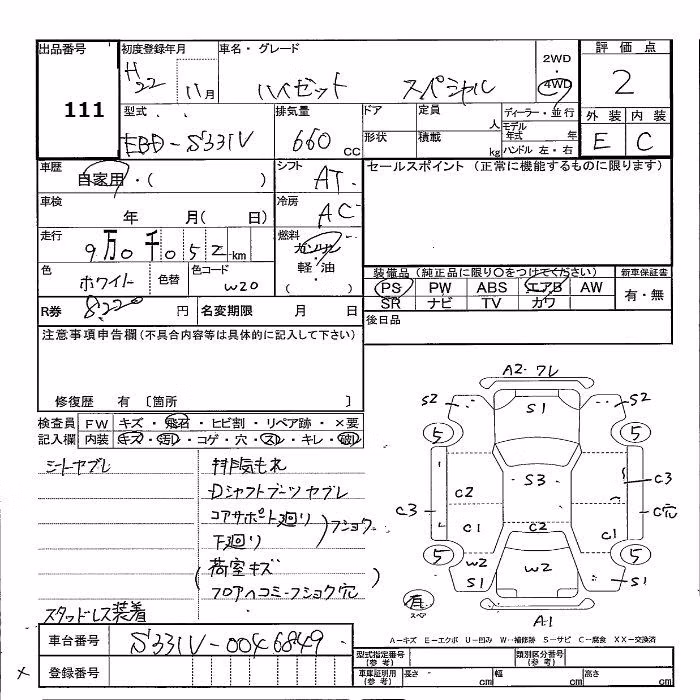 出品番号 初度登録年月 車名・グレード 2WD・4WD 評価点
111 H22 11月 ハイゼット スペシャル 2
型式 排気量 ドア 定員 人 ディーラー・並行 外装 内装
EBD-S331V 660 cc 形状 積載 kg モデル年式 年 ハンドル 左・右 E C
車歴 自家用・( ) シフト AT セールスポイント(正常に機能するものに限ります)
車検 年 月( 日) 冷房 AC
走行 9万0千052km 燃料 ガソリン・軽油・( )
色 ホワイト 色替 色コード W20 装備品(純正品に限り〇をつけてください) 新車保証書
PS PW ABS エアB AW 有・無
R券 8220円 名変期限 月 日 SR ナビ TV カワ
注意事項申告欄(不具合内容等は具体的に記入して下さい) 後日品
修復歴 有 〔箇所 〕
検査員 FW キズ・飛石・ヒビ割・リペア跡・×要
記入欄 内装 キズ・汚レ・コゲ・穴・スレ・キレ・破レ
シートヤブレ 排気もれ
Dシャフトブーツヤブレ
コアサポート廻り
下廻り
フショク
(荷室キズ
フロアヘコミ・フショク穴)
スタッドレス装着
A2・ワレ
S2 S1 S2
5 5
S3 C3
C2
C3 C穴
C1 C2 C1
5 5
W2 W2
S1 S1
有
スペア
A1
A-キズ E-エクボ U-凹み W-補修跡 S-サビ C-腐食 XX-交換済
車台番号 S331V-0046849
型式指定番号(参考) 類別区分番号(参考)
× 登録番号
車庫証明用(参考) 長さ cm 幅 cm 高さ cm